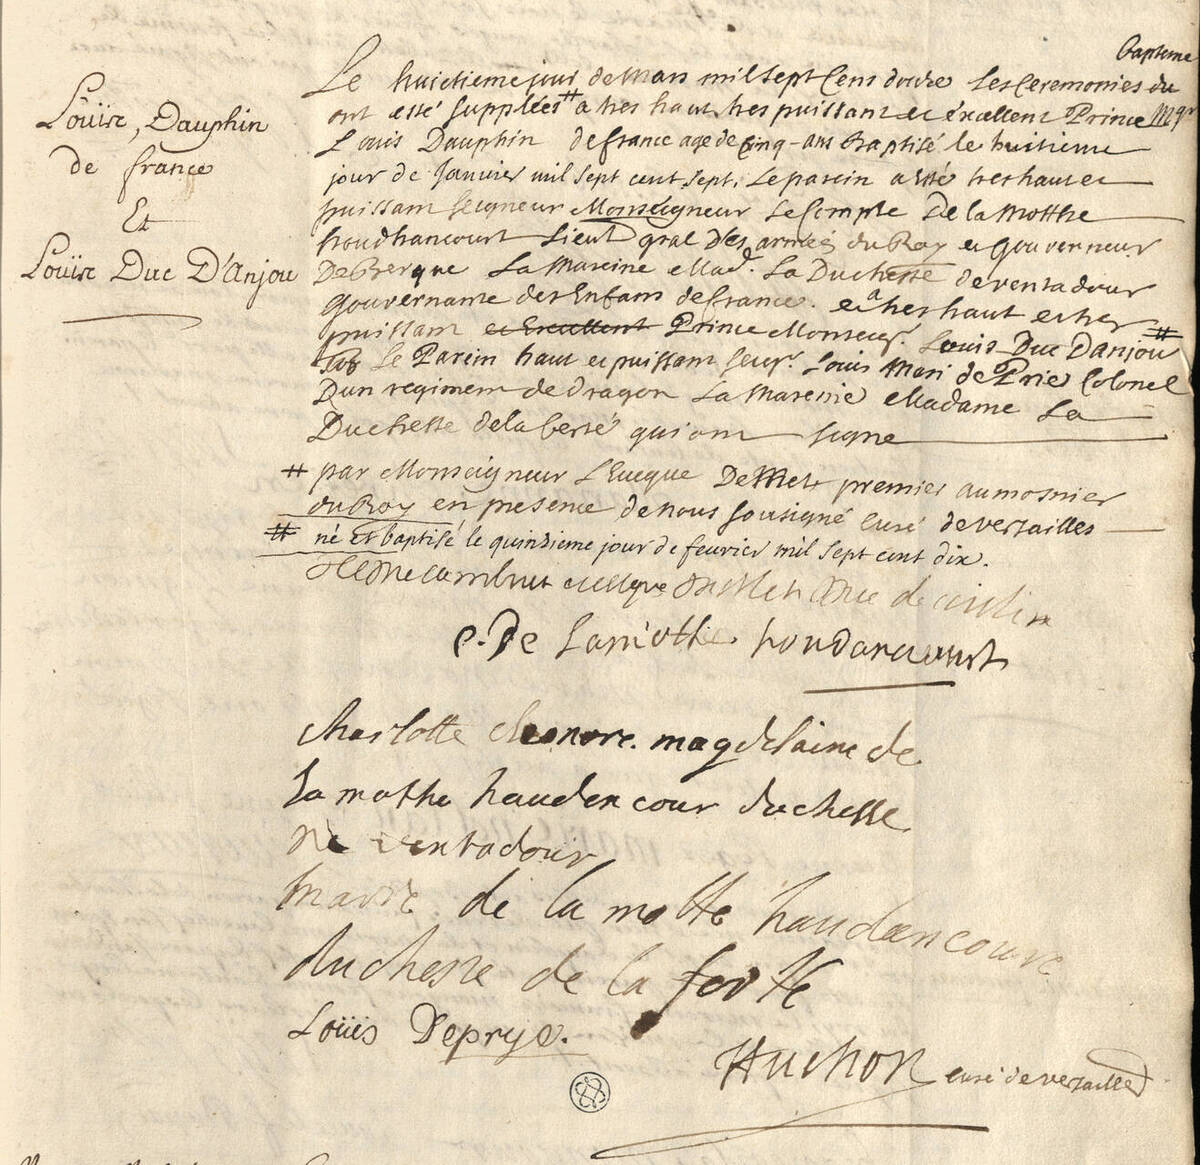 Louïse, Dauphin
de france
Et
Louïse Duc D'Anjou
bapteme
Le huictieme jour de Mars mil sept Cens douze Les Ceremonies du
ont esté supplées # a tres haut, tres puissant et éxcellent Prince Mgr
Louis Dauphin de france agé de Cinq-ans Baptisé le huitieme
jour de Janvier mil sept cent sept. Le parein a esté tres haut et
puissant seigneur Monseigneur Le Compte De la Motthe
houdhancourt Lieut gral Des armées du Roy et Gouverneur
De Bergue La Mareine Mad. La Duchesse de ventadour
Gouvernante des Enfans de france. et a tres haut et tres
puissant et Excellent Prince Monseigr. Louis Duc Danjou #
Le Parein haut et puissant seigr. Louis Mari de Prie Colonel
Dun regiment de dragon La Mareine Madame La
Duchesse de la ferté qui ont signe
# par Monseigneur L'Eveque De Metz premier aumosnier
du Roy en presence de nous sousigné curé de versailles
# né et baptisé le quinzieme jour de fevrier mil sept cent dix.
duc de coislin
C. De Lamothe houdancourt
charlotte eleonore magdelaine de
la mothe haudencour duchesse
de ventadour
marie de la motte haudencourt
duchesse de la ferte
Louïs Deprye.
Huchon curé de versailles